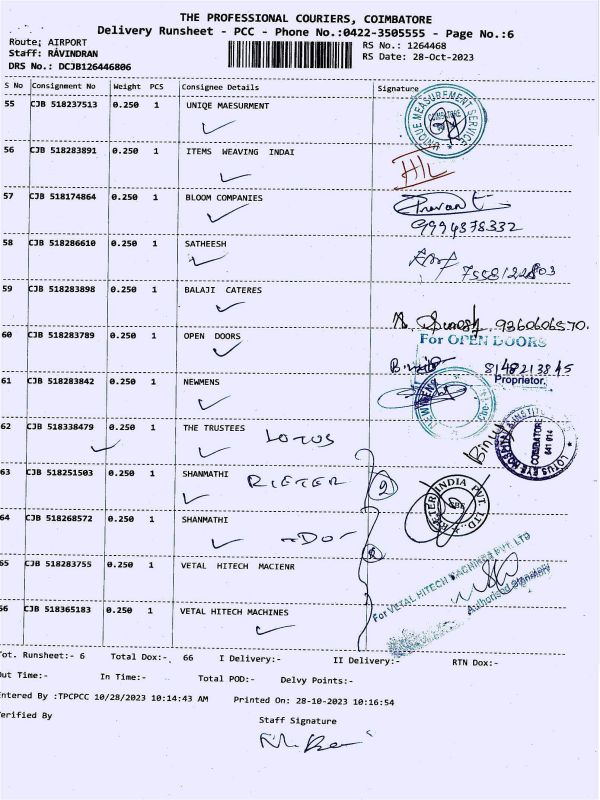 THE PROFESSIONAL COURIERS, COIMBATORE
Delivery Runsheet - PCC - Phone No.:0422-3505555 - Page No.:6
Route; AIRPORT RS No.: 1264468
Staff: RAVINDRAN RS Date: 28-Oct-2023
DRS No.: DCJB126446806
S No Consignment No Weight PCS Consignee Details Signature
55 CJB 518237513 0.250 1 UNIQE MAESURMENT
UNIQUE MEASUREMENT SERVICES
COIMBATORE
56 CJB 518283891 0.250 1 ITEMS WEAVING INDAI
57 CJB 518174864 0.250 1 BLOOM COMPANIES
9994378332
58 CJB 518286610 0.250 1 SATHEESH
59 CJB 518283898 0.250 1 BALAJI CATERES
9360606570.
60 CJB 518283789 0.250 1 OPEN DOORS
For OPEN DOORS
8148213845
Proprietor.
61 CJB 518283842 0.250 1 NEWMENS
NEWMENS
62 CJB 518338479 0.250 1 THE TRUSTEES LOTUS
LOTUS EYE HOSPITAL & INSTITUTE
COIMBATORE
641 014
63 CJB 518251503 0.250 1 SHANMATHI RIETER
2
RIETER INDIA PVT. LTD.
64 CJB 518268572 0.250 1 SHANMATHI -DO-
65 CJB 518283755 0.250 1 VETAL HITECH MACIENR
For VETAL HITECH MACHINES PVT. LTD
Authorised Signatory
66 CJB 518365183 0.250 1 VETAL HITECH MACHINES
Tot. Runsheet:- 6 Total Dox:- 66 I Delivery:- II Delivery:- RTN Dox:-
Out Time:- In Time:- Total POD:- Delvy Points:-
Entered By :TPCPCC 10/28/2023 10:14:43 AM Printed On: 28-10-2023 10:16:54
Verified By Staff Signature